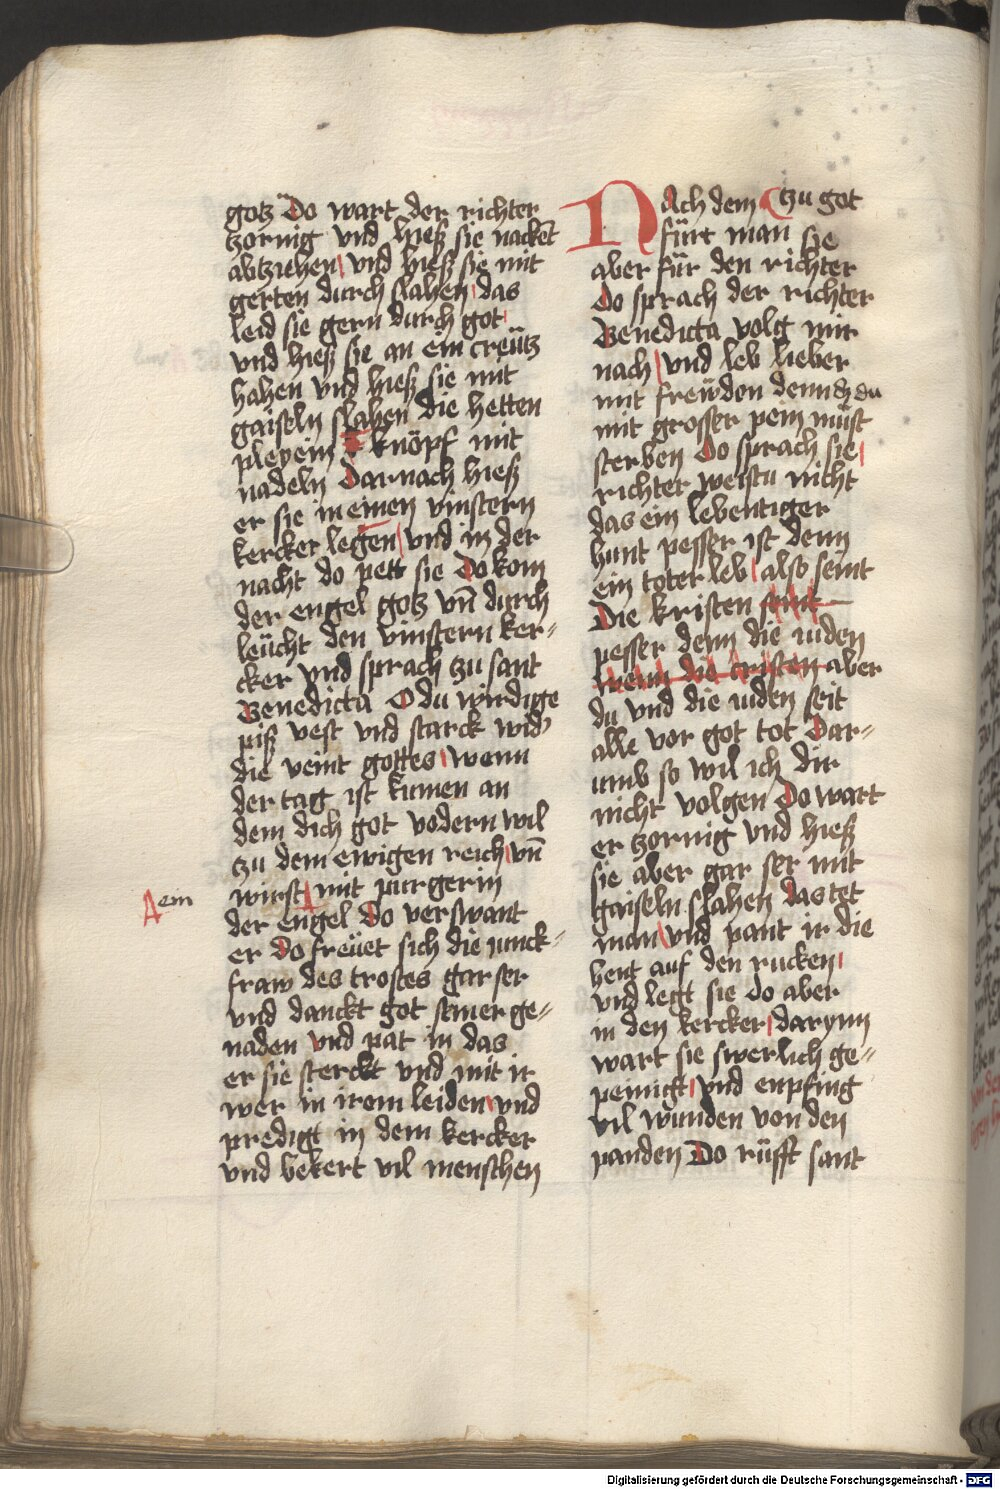 gotz Do wart der richter
zornig vnd hieß sie nacket
abtziehen vnd hieß sie mit
gerten durch slahen das
leid sie gern durch got
vnd hieß sie an ein creütz
hahen vnd hieß sie mit
gaiseln slahen die hetten
pleyein knöpf mit
nadeln Darnach hieß
er sie in einen vinstern
kercker legen vnd in der
nacht do pett sie Do kom
der engel gotz vn̄ durch
leücht den vinstern ker⸗
cker vnd sprach zu sant
Benedicta O du wirdige
piß vest vnd starck wid'
die veint gottes wenn
der tag ist kumen an
dem dich got vodern wil
zu dem ewigen reich vn̄
wirst mit purgerin
A ein
der engel Do verswant
er Do freüet sich die iunck⸗
fraw des trostes gar ser
vnd danckt got seiner ge⸗
naden vnd pat in das
er sie sterckt vnd mit ir
wer in irem leiden vnd
predigt in dem kercker
vnd bekert vil menschen
NAch dem zu got
fürt man sie
aber für den richter
Do sprach der richter
Benedicta volg mir
nach vnd leb lieber
mit freẅden denn dz du
mit grosser pein müst
sterben Do sprach sie
richter weistu nicht
das ein lebentiger
hunt pesser ist denn
ein toter leb also seint
Die kristen seint
pesser denn die iuden
wenn die cristen aber
du vnd die iuden seit
alle vor got tot Dar⸗
umb so wil ich dir
nicht volgen Do wart
er zornig vnd hieß
sie aber gar ser mit
gaiseln slahen das tet
man vnd pant ir die
hent auf den rucken
vnd legt sie do aber
in den kercker darynn
wart sie swerlich ge⸗
peinigt vnd enpfing
vil wunden von den
panden Do rüfft sant
Digitalisierung gefördert durch die Deutsche Forschungsgemeinschaft - DFG